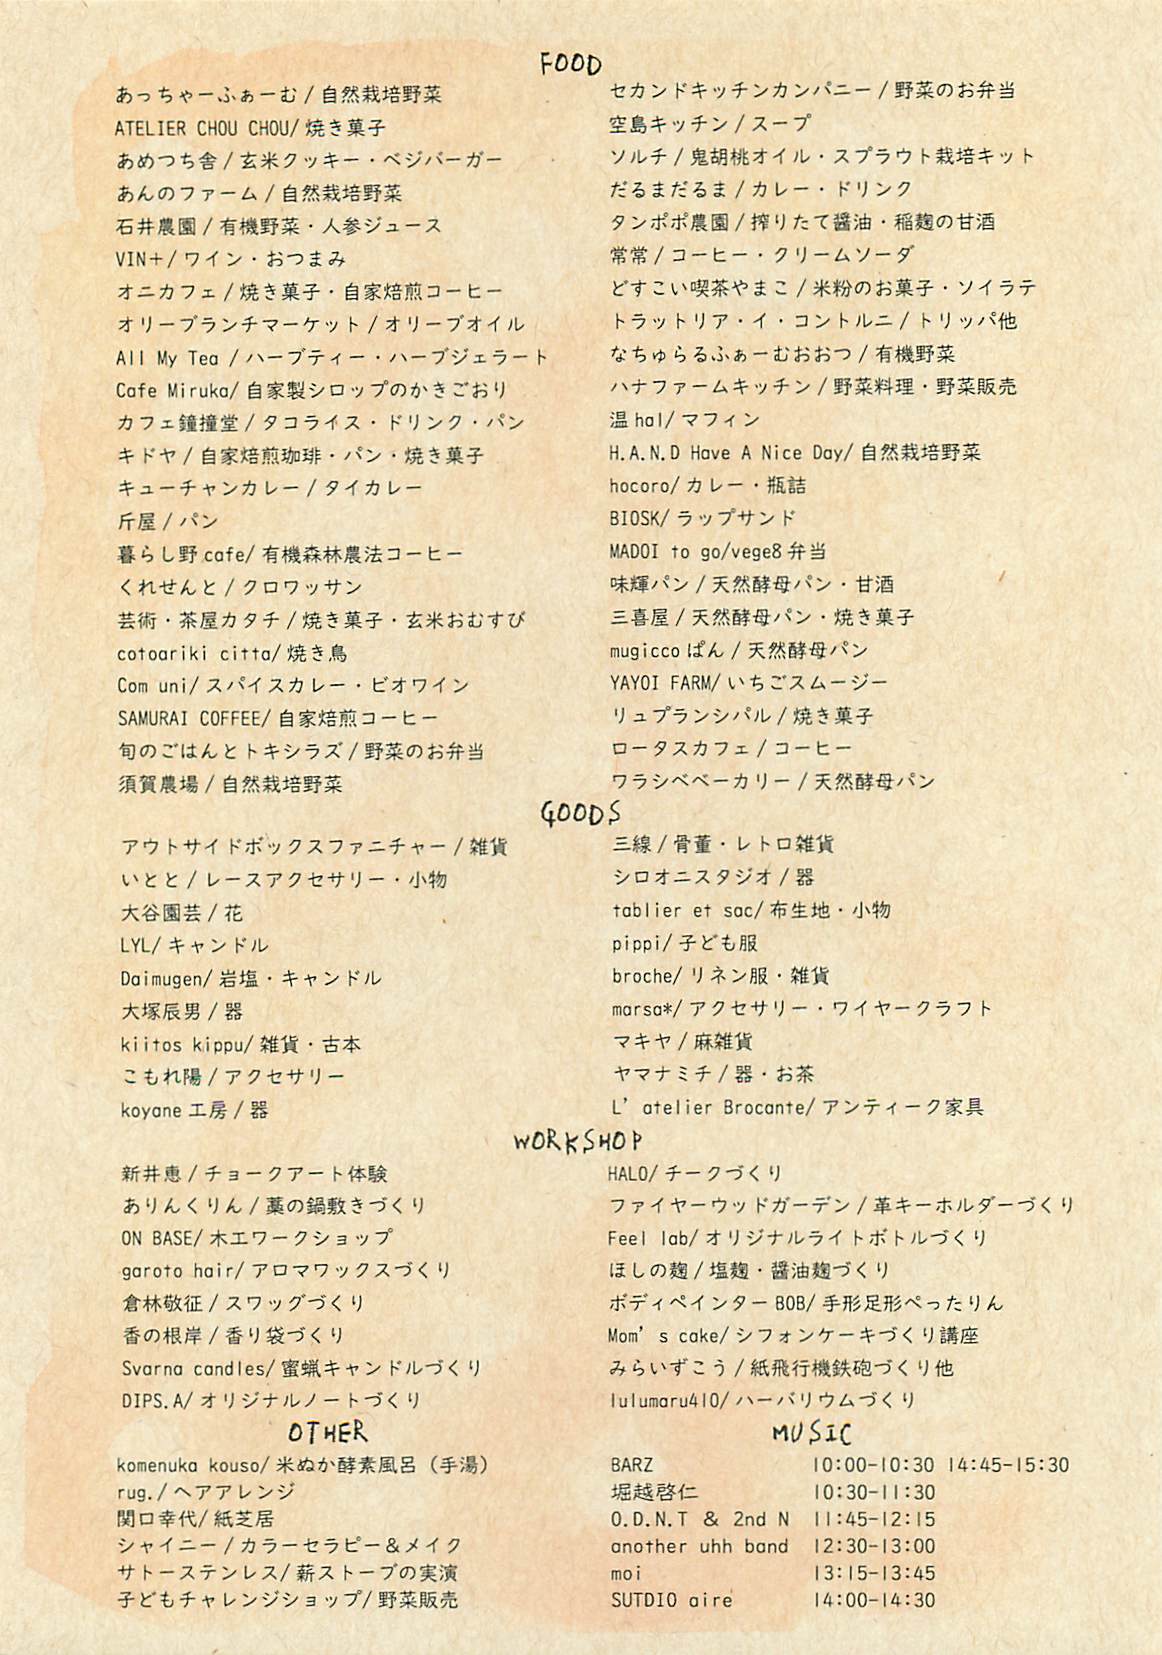 FOOD
あっちゃーふぁーむ/自然栽培野菜
ATELIER CHOU CHOU/焼き菓子
あめつち舎/玄米クッキー・ベジバーガー
あんのファーム/自然栽培野菜
石井農園/有機野菜・人参ジュース
VIN+/ワイン・おつまみ
オニカフェ/焼き菓子・自家焙煎コーヒー
オリーブランチマーケット/オリーブオイル
All My Tea /ハーブティー・ハーブジェラート
Cafe Miruka/自家製シロップのかきごおり
カフェ鐘撞堂/タコライス・ドリンク・パン
キドヤ/自家焙煎珈琲・パン・焼き菓子
キューチャンカレー/タイカレー
斤屋/パン
暮らし野cafe/有機森林農法コーヒー
くれせんと/クロワッサン
芸術・茶屋カタチ/焼き菓子・玄米おむすび
cotoariki citta/焼き鳥
Com uni/スパイスカレー・ビオワイン
SAMURAI COFFEE/自家焙煎コーヒー
旬のごはんとトキシラズ/野菜のお弁当
須賀農場/自然栽培野菜
セカンドキッチンカンパニー/野菜のお弁当
空島キッチン/スープ
ソルチ/鬼胡桃オイル・スプラウト栽培キット
だるまだるま/カレー・ドリンク
タンポポ農園/搾りたて醤油・稲麹の甘酒
常常/コーヒー・クリームソーダ
どすこい喫茶やまこ/米粉のお菓子・ソイラテ
トラットリア・イ・コントルニ/トリッパ他
なちゅらるふぁーむおおつ/有機野菜
ハナファームキッチン/野菜料理・野菜販売
温hal/マフィン
H.A.N.D Have A Nice Day/自然栽培野菜
hocoro/カレー・瓶詰
BIOSK/ラップサンド
MADOI to go/vege8弁当
味輝パン/天然酵母パン・甘酒
三喜屋/天然酵母パン・焼き菓子
mugiccoぱん/天然酵母パン
YAYOI FARM/いちごスムージー
リュプランシパル/焼き菓子
ロータスカフェ/コーヒー
ワラシベベーカリー/天然酵母パン
GOODS
アウトサイドボックスファニチャー/雑貨
いとと/レースアクセサリー・小物
大谷園芸/花
LYL/キャンドル
Daimugen/岩塩・キャンドル
大塚辰男/器
kiitos kippu/雑貨・古本
こもれ陽/アクセサリー
koyane工房/器
三線/骨董・レトロ雑貨
シロオニスタジオ/器
tablier et sac/布生地・小物
pippi/子ども服
broche/リネン服・雑貨
marsa*/アクセサリー・ワイヤークラフト
マキヤ/麻雑貨
ヤマナミチ/器・お茶
L'atelier Brocante/アンティーク家具
WORKSHOP
新井恵/チョークアート体験
ありんくりん/藁の鍋敷きづくり
ON BASE/木工ワークショップ
garoto hair/アロマワックスづくり
倉林敬征/スワッグづくり
香の根岸/香り袋づくり
Svarna candles/蜜蝋キャンドルづくり
DIPS.A/オリジナルノートづくり
HALO/チークづくり
ファイヤーウッドガーデン/革キーホルダーづくり
Feel lab/オリジナルライトボトルづくり
ほしの麹/塩麹・醤油麹づくり
ボディペインターBOB/手形足形ぺったりん
Mom's cake/シフォンケーキづくり講座
みらいずこう/紙飛行機鉄砲づくり他
lulumaru410/ハーバリウムづくり
OTHER
komenuka kouso/米ぬか酵素風呂(手湯)
rug./ヘアアレンジ
関口幸代/紙芝居
シャイニー/カラーセラピー&メイク
サトーステンレス/薪ストーブの実演
子どもチャレンジショップ/野菜販売
MUSIC
BARZ 10:00-10:30 14:45-15:30
堀越啓仁 10:30-11:30
O.D.N.T & 2nd N 11:45-12:15
another uhh band 12:30-13:00
moi 13:15-13:45
SUTDIO aire 14:00-14:30